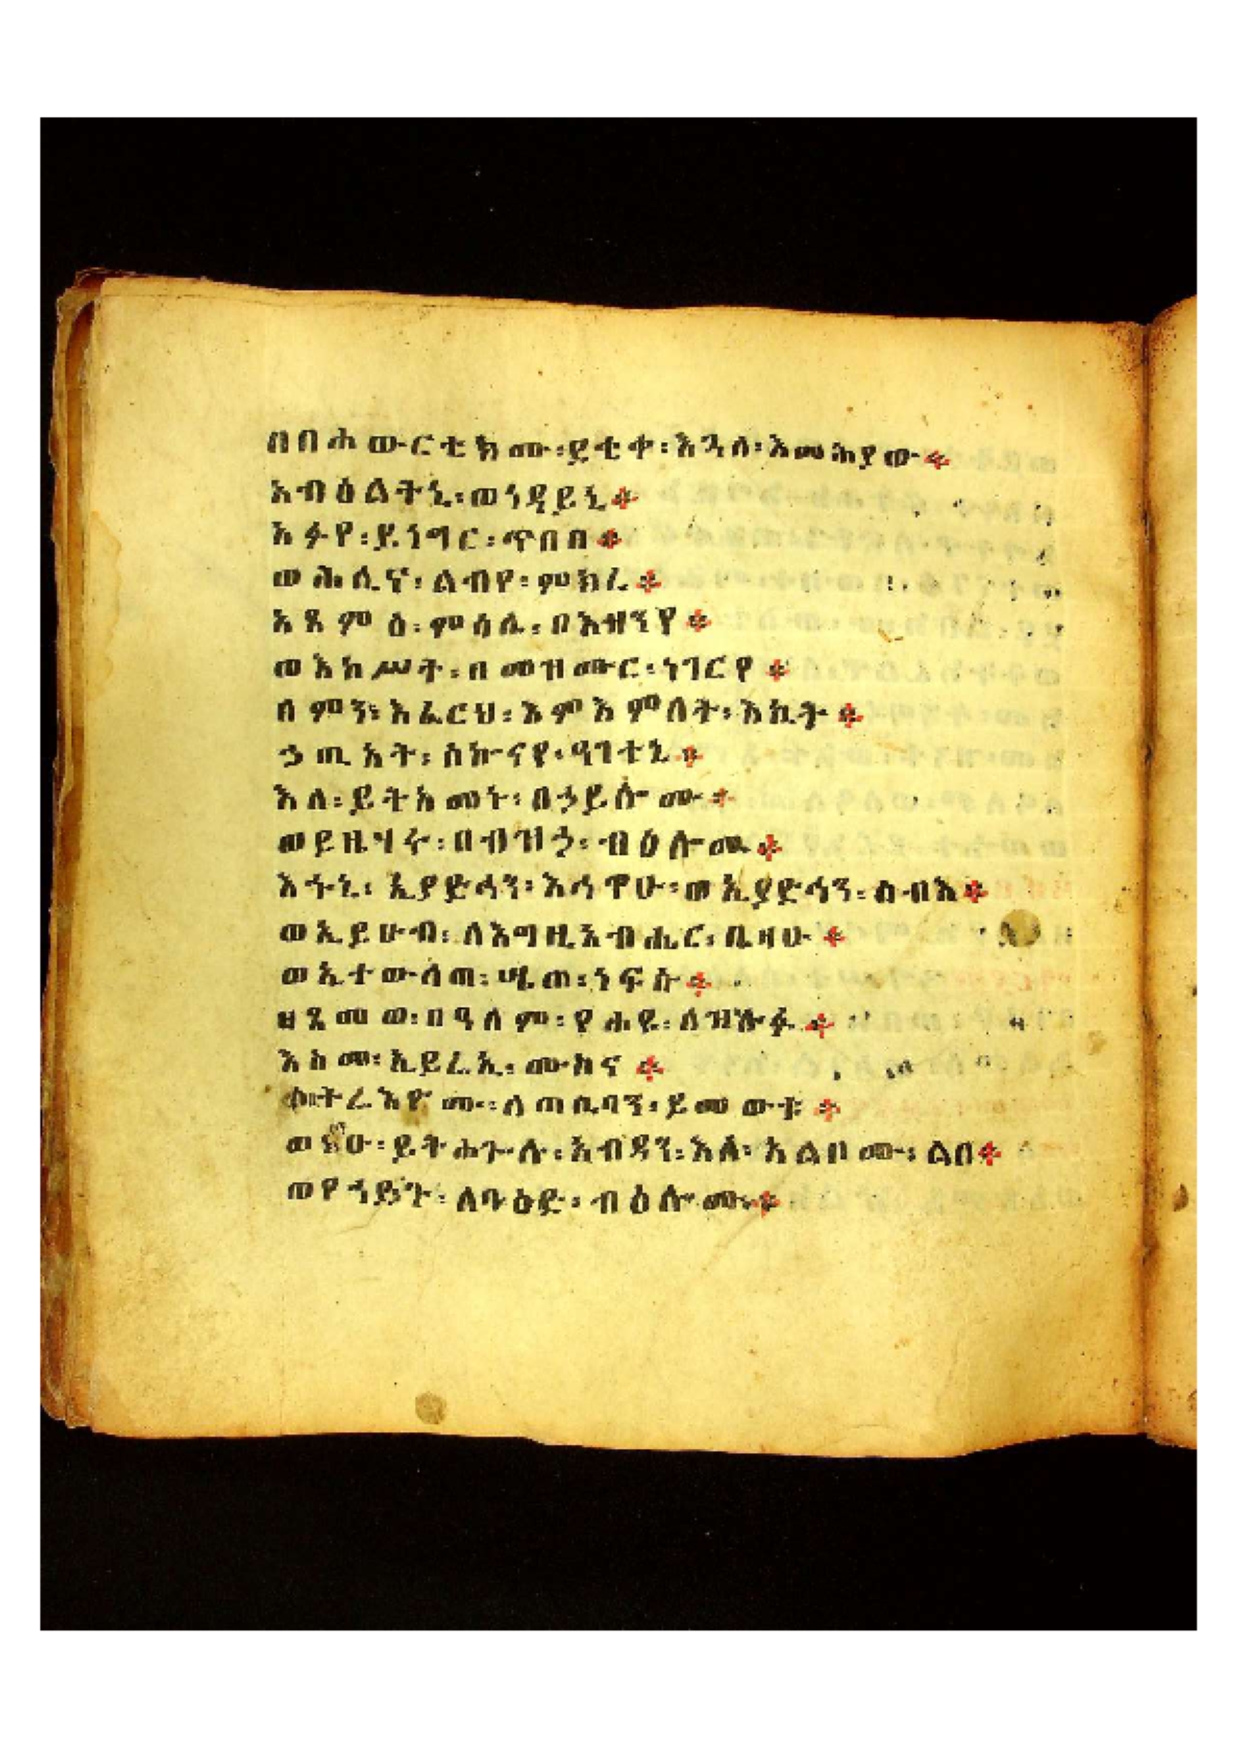 በበሐውርቲክሙ፡ደቂቀ፡እጓለ፡እመሕያው።
አብዕልትኒ፡ወነዳይኒ።
አፉየ፡ይነግር፡ጥበበ።
ወሕሊና፡ልብየ፡ምክረ።
አጸምዕ፡ምሳሌ፡በእዝንየ።
ወእከሥት፡በመዝሙር፡ነገርየ።
ለምንት፡እፈርህ፡እምእምዕለት፡እኪት።
ኃጢአት፡ሰኰናየ፡ዓገተኒ።
እለ፡ይትአመኑ፡በኃይሎሙ።
ወይዜኀሩ፡በብዝኃ፡ብዕሎሙ።
እኅኒ፡ኢያድኅን፡እኅዋሁ፡ወኢያድኅን፡ሰብእ።
ወኢይሁብ፡ለእግዚአብሔር፡ቤዛሁ።
ወኢተውላጠ፡ሤጠ፡ነፍሱ።
ዘጻመወ፡በዓለም፡የሐዩ፡ለዝሉፉ።
እስመ፡ኢይሬኢ፡ሙስና።
ሶበ፡ትሬእዮሙ፡ለጠቢባን፡ይመውቱ።
ወከማሁ፡ይትሐጐሉ፡አብዳን፡እለ፡አልቦሙ፡ልበ።
ወየኀድጉ፡ለባዕድ፡ብዕሎሙ።